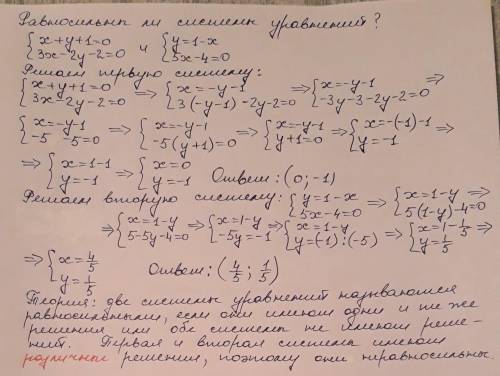 Равносильны ли системы уравнений?
{x+y+1=0 {y=1-x
{3x-2y-2=0 и {5x-4=0
Решаем первую систему:
{x+y+1=0 => {x=-y-1 => {x=-y-1 =>
{3x-2y-2=0 {3(-y-1)-2y-2=0 {-3y-3-2y-2=0
{x=-y-1 => {x=-y-1 => {x=-y-1 => {x=-(-1)-1 =>
{-5 -5=0 {-5(y+1)=0 {y+1=0 {y=-1
=> {x=1-1 => {x=0
{y=-1 {y=-1 Ответ: (0; -1)
Решаем вторую систему: {y=1-x => {x=1-y =>
{5x-4=0 {5(1-y)-4=0
=> {x=1-y => {x=1-y => {x=1-y => {x=1-1/5 =>
{5-5y-4=0 {-5y=-1 {y=(-1):(-5) {y=1/5
=> {x=4/5
{y=1/5 Ответ: (4/5; 1/5)
Теория: две системы уравнений называются
равносильными, если они имеют одни и те же
решения или обе системы не имеют реше-
ний. Первая и вторая система имеют
различные решения, поэтому они неравносильны.